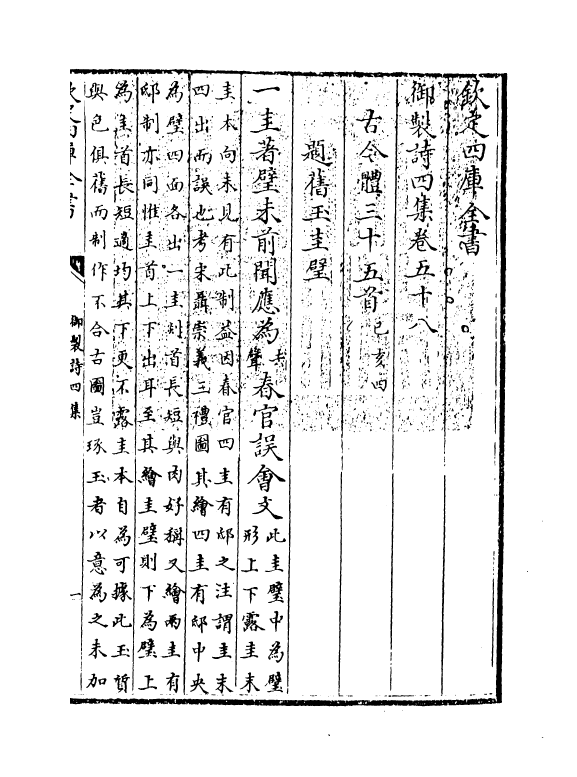 欽定四庫全書
御製詩四集卷五十八
古今體三十五首己亥四
題舊玉圭璧
一圭著璧未前聞應為去聲春官誤會文此圭璧中為璧
形上下露圭末
圭本向未見有此制益因春官四圭有邸之注謂圭末
四出而誤也考宋聶崇義三禮圖其繪四圭有邸中央
為璧四面各出一圭剡首長短與肉好稱又繪兩圭有
邸制亦同惟圭首上下出耳至其繪圭璧則下為璧上
為圭首長短適均其下更不露圭本自為可據此玉質
與色俱舊而制作不合古圖豈琢玉者以意為之未加
欽定四庫全書
御製詩四集
一